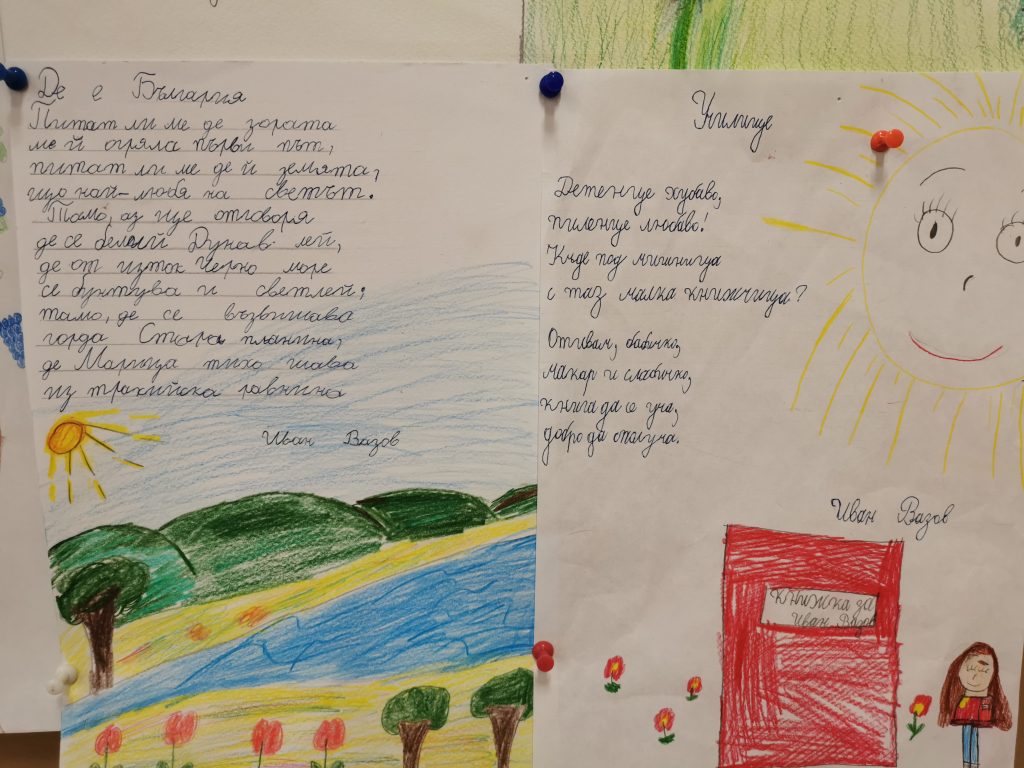 Де е България
Питат ли ме де зората
ме й огряла първи път,
питат ли ме де й земята,
що най-любя на светът.
Тамо, аз ще отговоря
де се белий Дунав лей,
де от изток Черно море
се бунтува и светлей;
тамо, де се възвишава
горда Стара планина,
де Марица тихо шава
из тракийска равнина
Иван Вазов
Училище
Детенце хубаво,
пиленце любаво!
Къде под мишница
с таз малка книжчица?
Отивам, бабичко,
макар и слабичко,
книга да се уча,
добро да сполуча.
Иван Вазов
книжка за
Иван Вазов